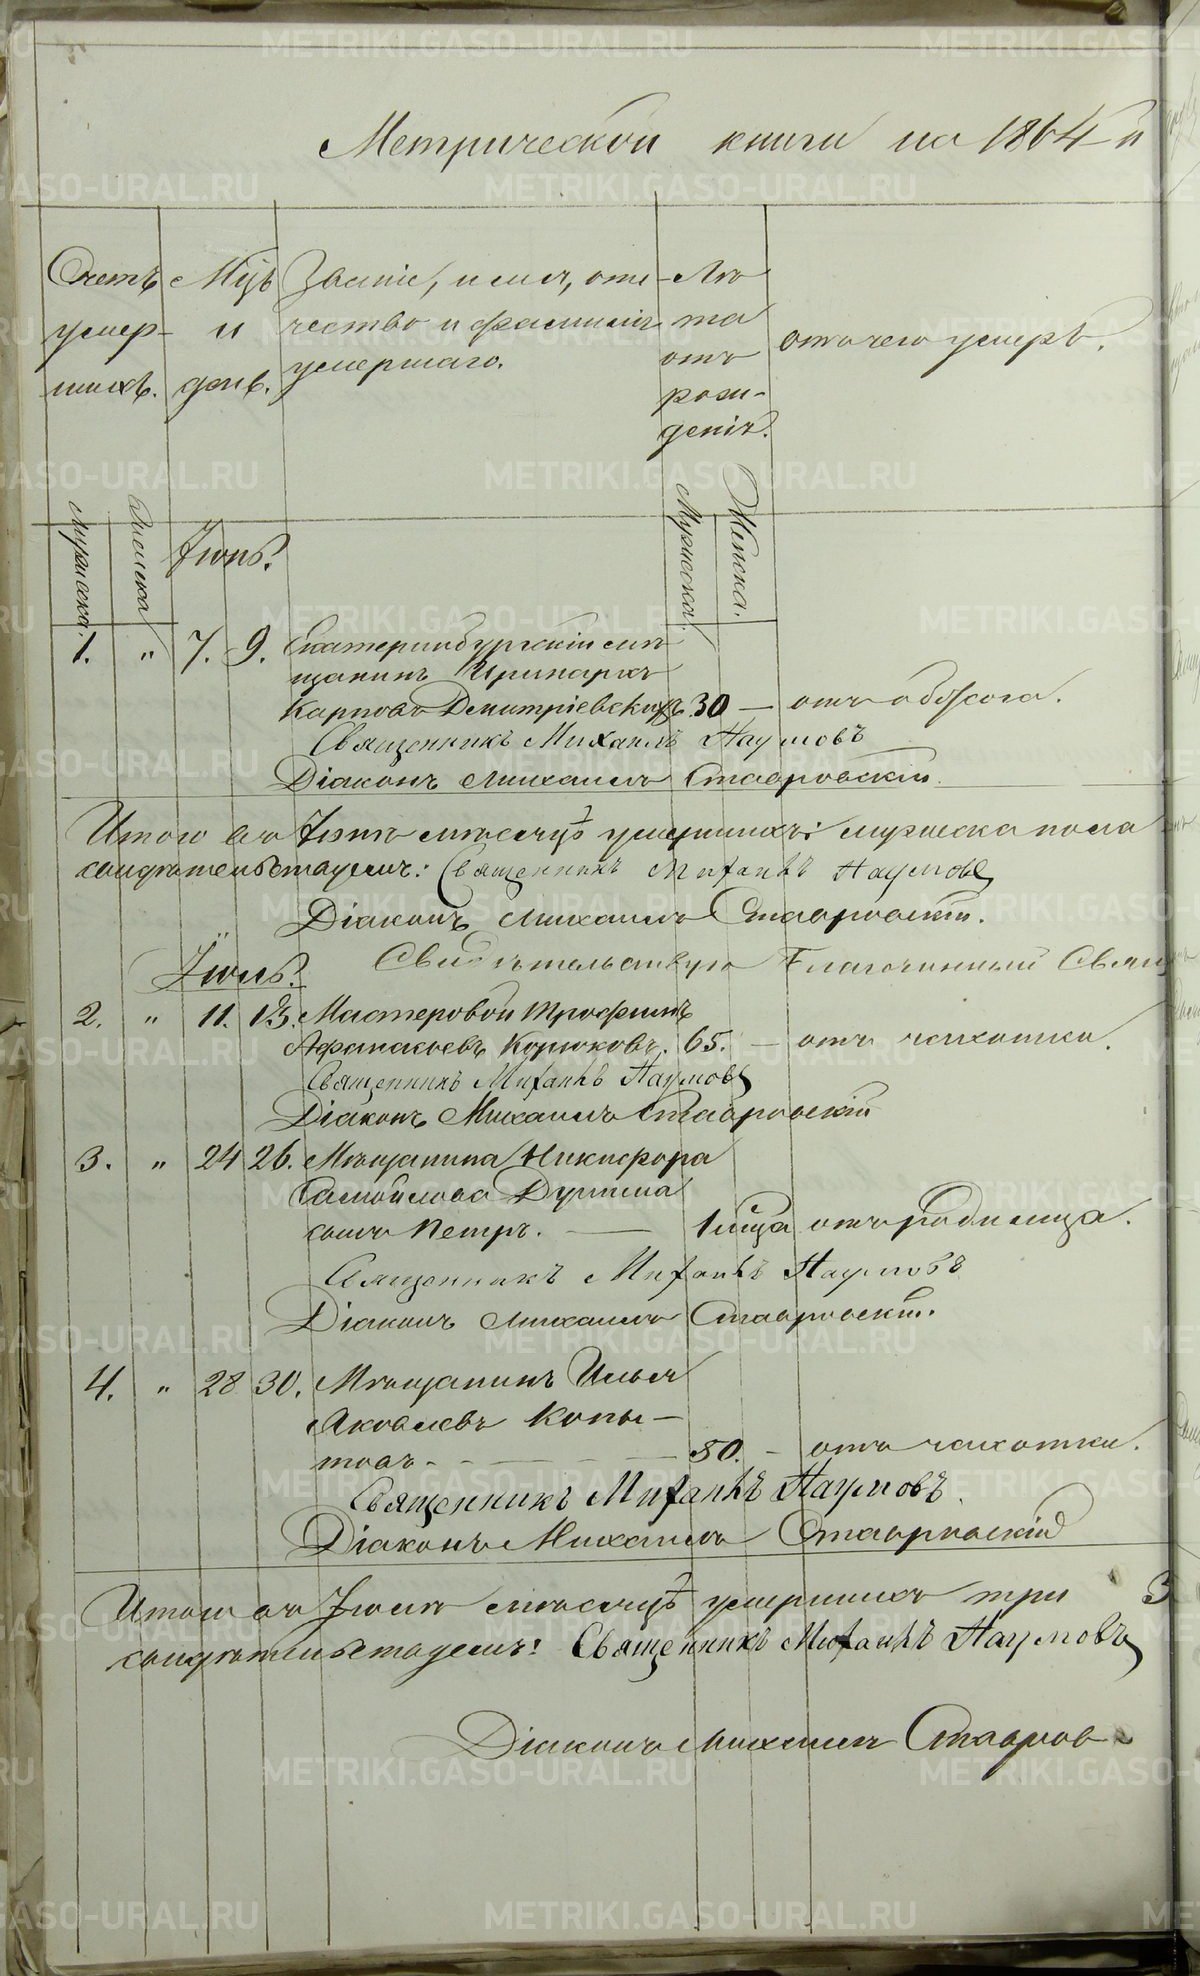 Метрической книги на 1864 й
Счетъ
умер-
шихъ.
Мцъ
и
день.
Званіе, имя, оте-
чество и фамилія
умершаго.
Лѣ
та
отъ
рож-
денія.
отъ чего умеръ.
Мужеска.
Женска
Мужеска.
Женска.
Іюнь.
1. " 7. 9. Екатеринбургскій мѣ
щанинъ Иринархъ
Карповъ Дмитріевскихъ 30 — отъ
Священникъ Михаилъ Наумовъ
Діаконъ Михаилъ Ставровскій.
Итого въ Іюнѣ мѣсяцѣ умершихъ: мужеска пола
свидѣтельствуемъ: Священникъ Михаилъ Наумовъ
Діаконъ Михаилъ Ставровскій.
Свидѣтельствую Благочинный Свящ
Іюль.
2. " 11. 13. Мастеровой Трофимъ
Афанасьевъ Корюковъ. 65. — отъ чихотки.
Священникъ Михаилъ Наумовъ
Діаконъ Михаилъ Ставровскій
3. " 24 26. Мѣщанина Никифора
Самойлова
сынъ Петръ. — 1 мца отъ родимца.
Священникъ Михаилъ Наумовъ
Діаконъ Михаилъ Ставровскій.
4. " 28 30. Мѣщанинъ Илья
Яковлевъ Копы-
товъ - - - - - 50. - отъ чихотки.
Священникъ Михаилъ Наумовъ.
Діаконъ Михаилъ Ставровскій
Итого въ Іюлѣ мѣсяцѣ умершихъ три 3
свидѣтельствуемъ: Священникъ Михаилъ Наумовъ
Діаконъ Михаилъ Ставров
METRIKI.GASO-URAL.RU